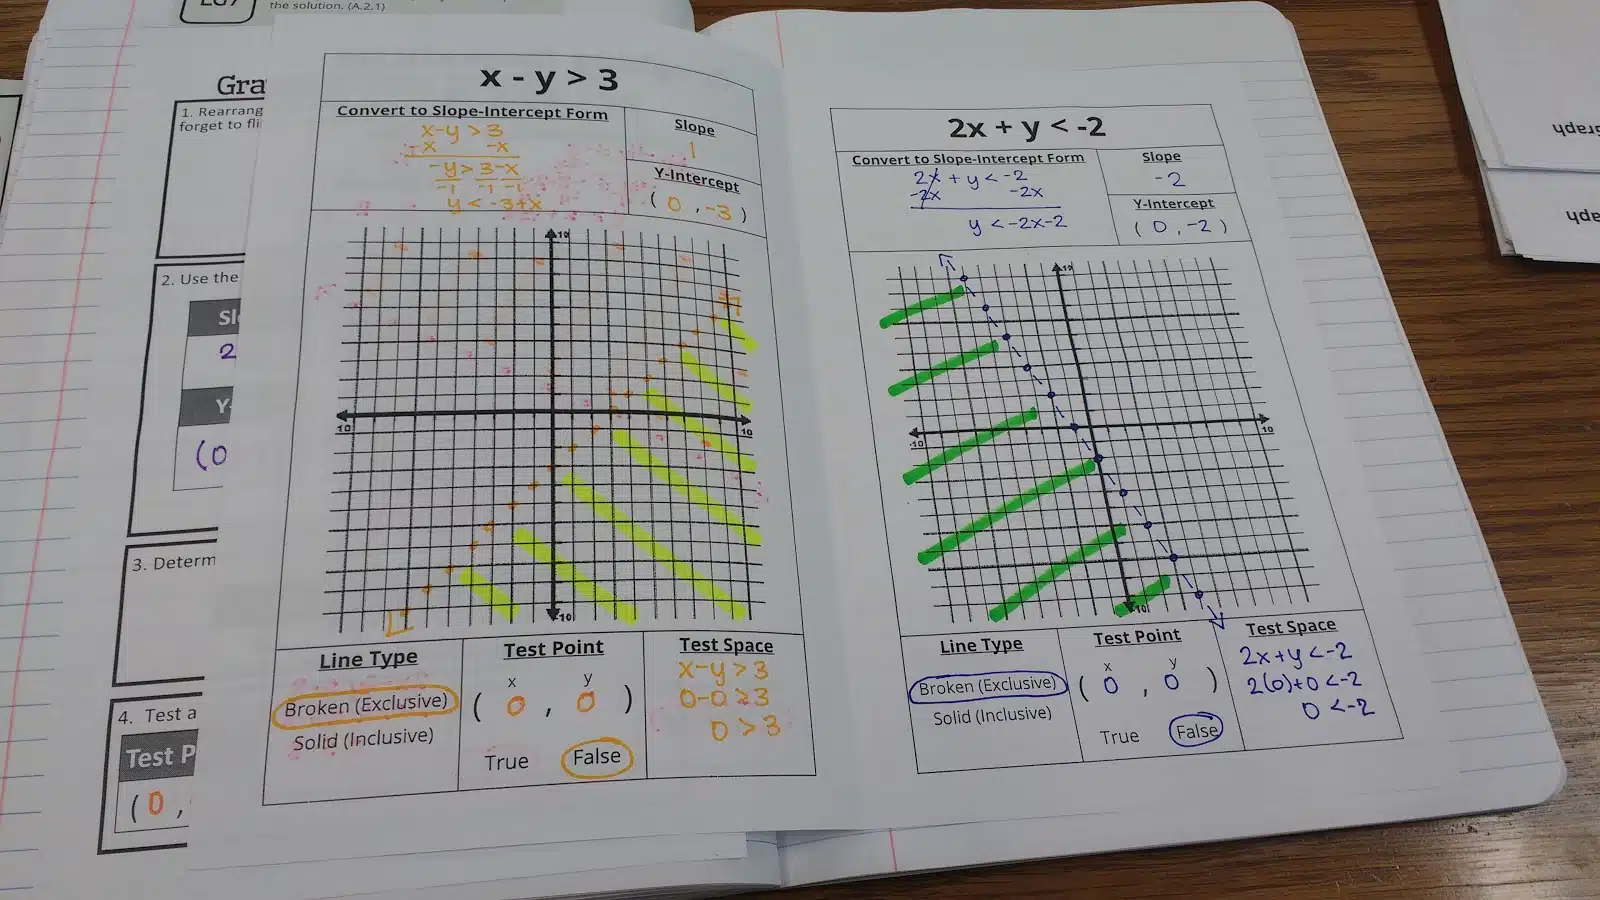 LG7
the solution. (A.2.1)
Gra
1. Rearrang
forget to fli
2. Use the
Sl
2
Y-
(0
3. Determ
4. Test a
Test P
(0,
x - y > 3
Convert to Slope-Intercept Form
x-y > 3
-x -x
-y > 3-x
-1 -1 -1
y < -3+x
Slope
1
Y-Intercept
(0, -3)
10
10
10
-10
Line Type
Broken (Exclusive)
Solid (Inclusive)
Test Point
x y
(0, 0)
True False
Test Space
x-y > 3
0-0 ≥ 3
0 > 3
2x + y < -2
Convert to Slope-Intercept Form
2x + y < -2
-2x -2x
y < -2x-2
Slope
-2
Y-Intercept
(0, -2)
10
-10
10
-10
Line Type
Broken (Exclusive)
Solid (Inclusive)
Test Point
x y
(0, 0)
True False
Test Space
2x+y < -2
2(0)+0 < -2
0 < -2
Graph